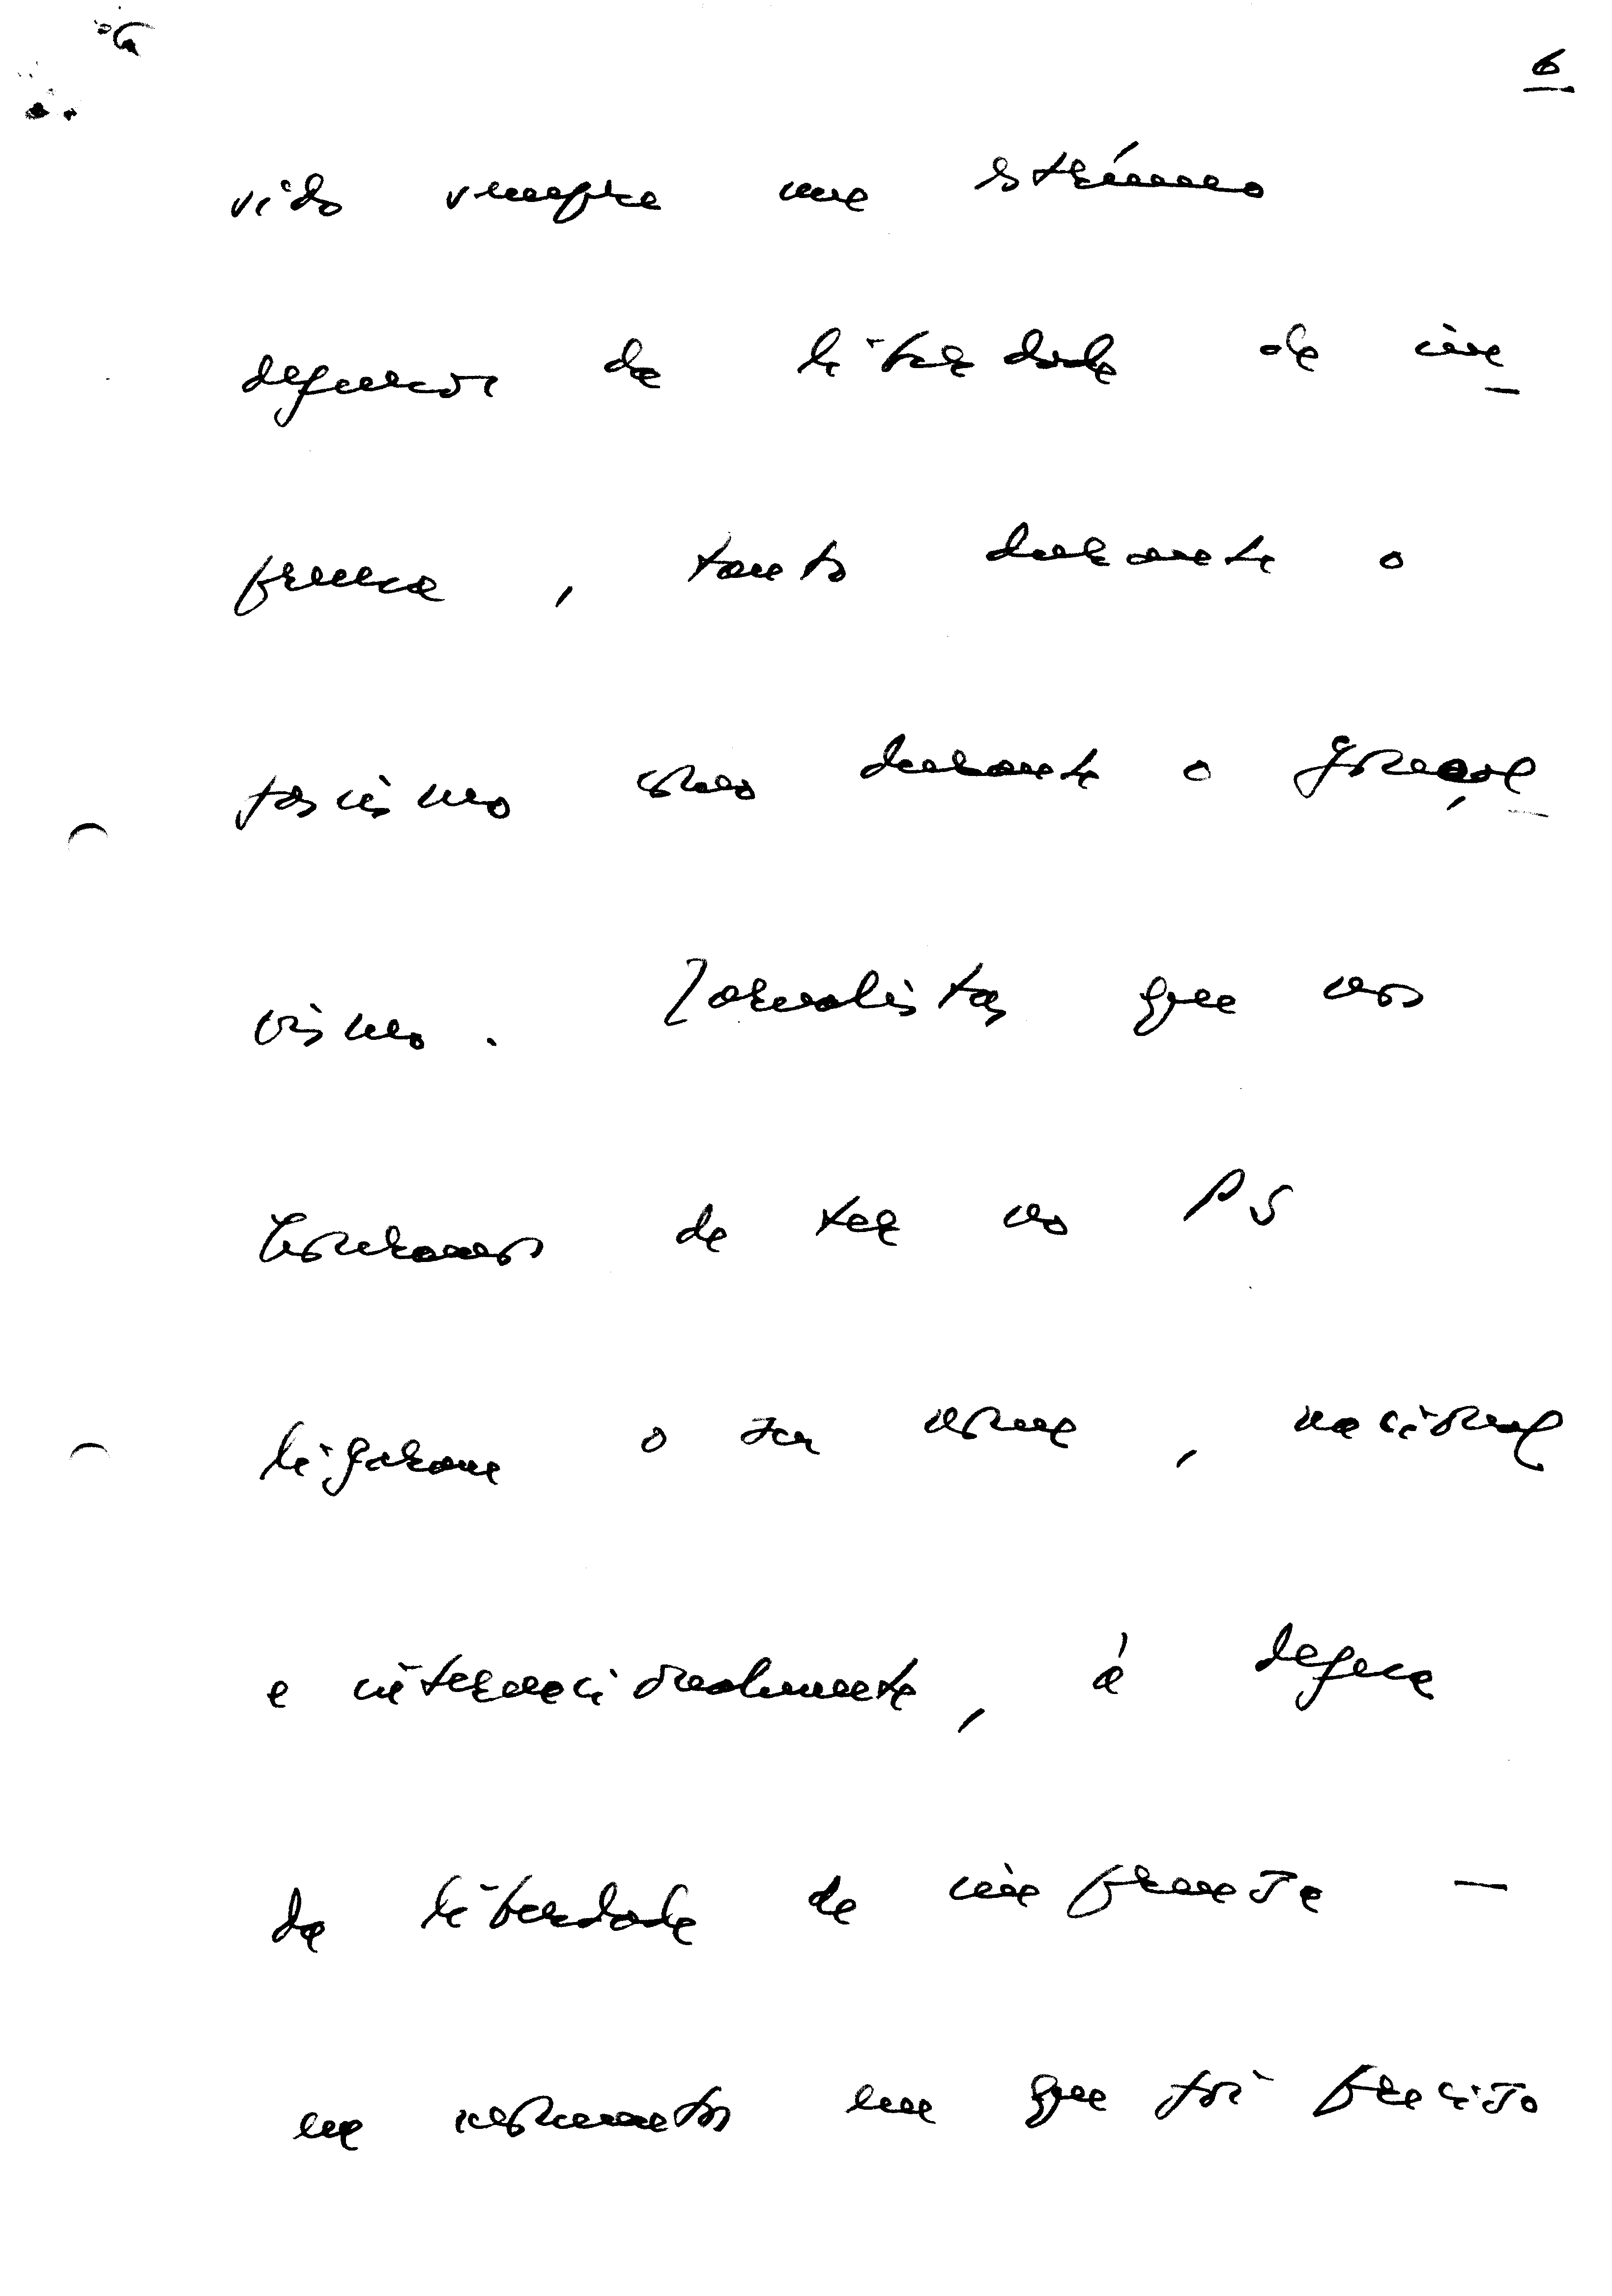 6
sido sempre um estrénuo
defensor da liberdade de im-
prensa, tanto durante o
fascismo como durante o gonçal-
vismo. Jornalistas que nos
honramos de ter no PS
ligaram o seu nome, nacional
e internacionalmente, à defesa
da liberdade de imprensa —
em momentos em que foi preciso